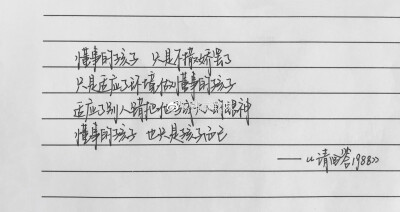 懂事的孩子 只是不撒娇罢了
只是适应了环境做懂事的孩子
适应了别人错把他当成大人的眼神
懂事的孩子 也只是孩子而已
——《请回答1988》